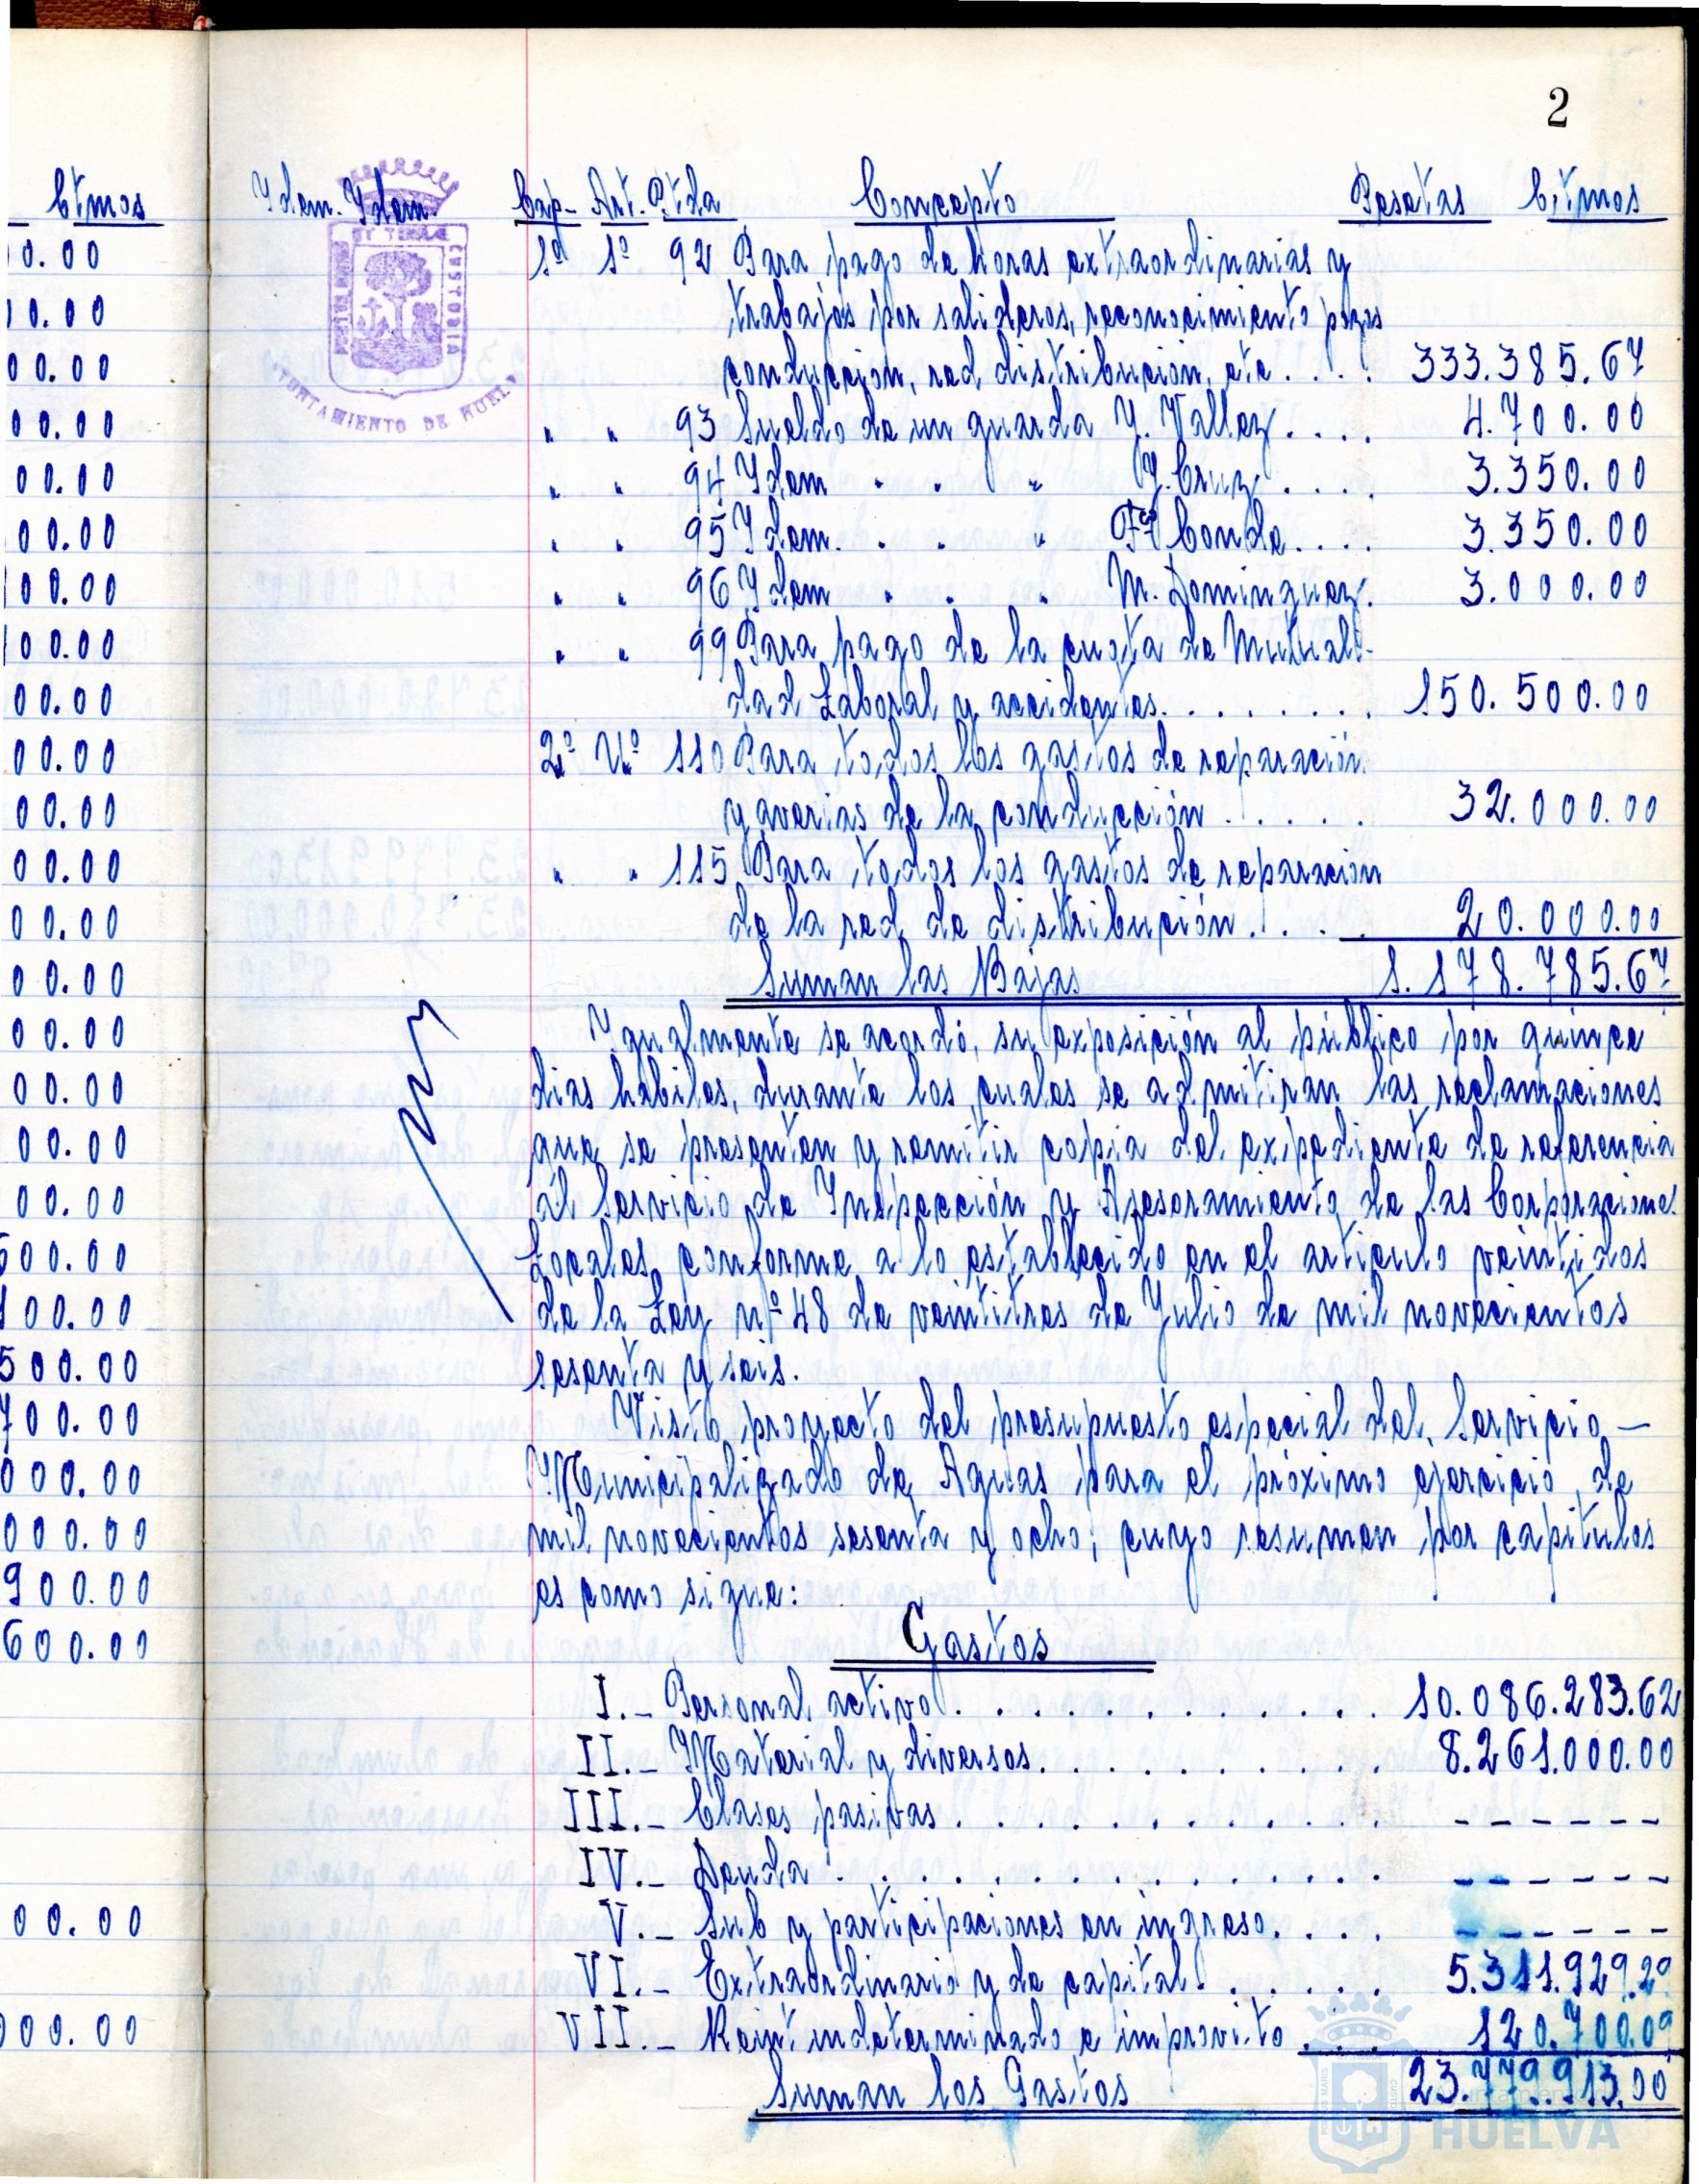 2
Ctmos
0.00
0.00
00.00
00.00
00.00
00.00
00.00
00.00
00.00
00.00
00.00
00.00
00.00
00.00
00.00
00.00
00.00
00.00
500.00
100.00
500.00
700.00
000.00
000.00
900.00
600.00
00.00
000.00
Idem. Idem. Cap- Art. Ptda Concepto Pesetas Ctmos
PORTUS MARIS ET TERRAE CUSTODIA
AYUNTAMIENTO DE HUELVA
1º 1º 92 Para pago de horas extraordinarias y
trabajos por salideros, reconocimiento pozos
conducción, red, distribución, etc.... 333.385.67
" " 93 Sueldo de un guarda J. Vallez.... 4.700.00
" " 94 Idem " " " J. Cruz.... 3.350.00
" " 95 Idem. " " " Fcº Conde.... 3.350.00
" " 96 Idem " " " M. Dominguez. 3.000.00
" " 99 Para pago de la cuota de Mutuali-
dad Laboral y accidentes........ 150.500.00
2º Uº 110 Para todos los gastos de reparación
y averias de la conducción..... 32.000.00
" " 115 Para todos los gastos de reparación
de la red de distribución.... 20.000.00
Suman las Bajas 1.178.785.67
Igualmente se acordó, su exposición al público por quince
dias habiles, durante los cuales se admitirán las reclamaciones
que se presenten y remitir copia del expediente de referencia
al Servicio de Inspección y Asesoramiento de las Corporaciones
Locales, conforme a lo establecido en el articulo veintidos
de la Ley nº 48 de veintitres de Julio de mil novecientos
sesenta y seis.
Visto proyecto del presupuesto especial del Servicio —
Municipalizado de Aguas para el próximo ejercicio de
mil novecientos sesenta y ocho; cuyo resumen por capitulos
es como sigue:
Gastos
I.- Personal activo............. 10.086.283.62
II.- Material y diversos.......... 8.261.000.00
III.- Clases pasivas............. ------
IV.- Deuda................ ------
V.- Sub y participaciones en ingreso.... ------
VI.- Extraordinario y de capital...... 5.311.929.29
VII.- Reint indeterminado e improvito... 120.700.09
Suman los Gastos 23.779.913.00
Ayuntamiento de
HUELVA